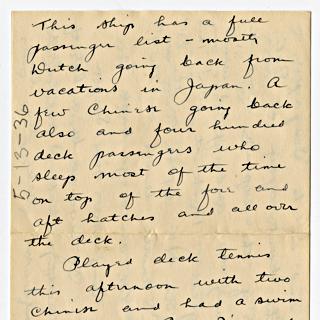 This ship has a full
passenger list - mostly
Dutch going back from
vacations in Japan. A
few Chinese going back
also and four hundred
deck passengers who
sleep most of the time
on top of the fore and
aft hatches and all over
the deck.
Played deck tennis
this afternoon with two
Chinese and had a swim
5-13-36